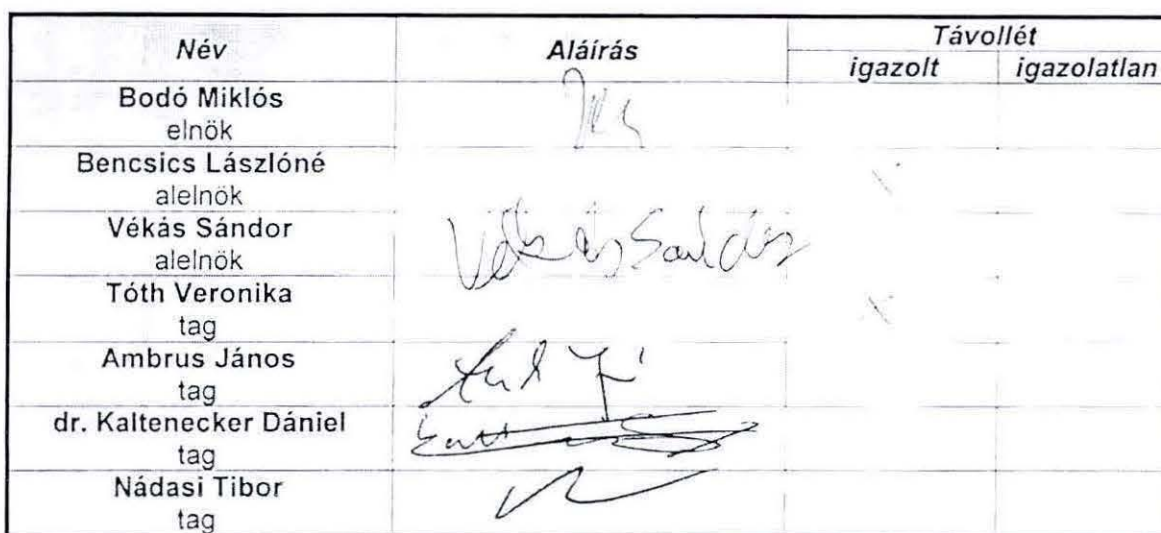 Név Aláírás Távollét
igazolt igazolatlan
Bodó Miklós
elnök
Bencsics Lászlóné
alelnök X
Vékás Sándor Vékás Sándor
alelnök
Tóth Veronika
tag X
Ambrus János
tag
dr. Kaltenecker Dániel
tag
Nádasi Tibor
tag